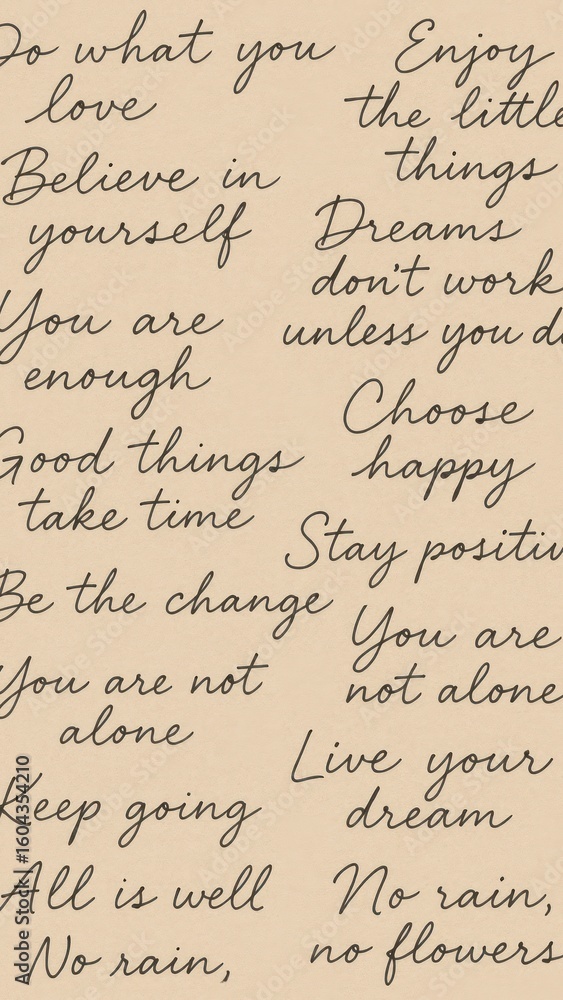 Do what you
love
Believe in
yourself
You are
enough
Good things
take time
Be the change
You are not
alone
Keep going
All is well
No rain,
Enjoy
the little
things
Dreams
don't work
unless you do
Choose
happy
Stay positiv
You are
not alone
Live your
dream
No rain,
no flowers
Adobe Stock | #1604354210